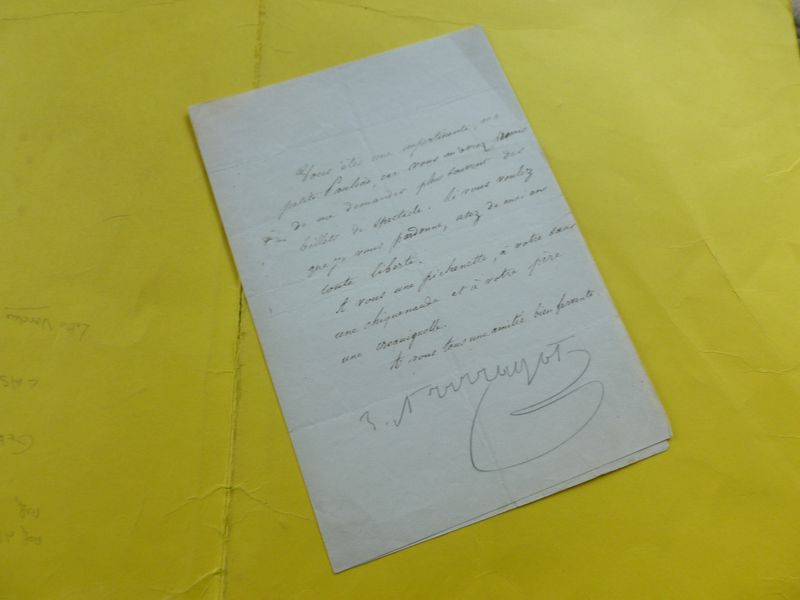 Vous êtes une impertinente, ma
petite Pauline, car vous m'aviez promis
de me demander plus souvent des
billets de spectacle. Si vous voulez
que je vous pardonne, usez de moi en
toute liberté.
A vous une pichenette, à votre
une chiquenaude et à votre père
une croquignolle.
A vous tous une amitié bien fervente.
J. Arrrragot